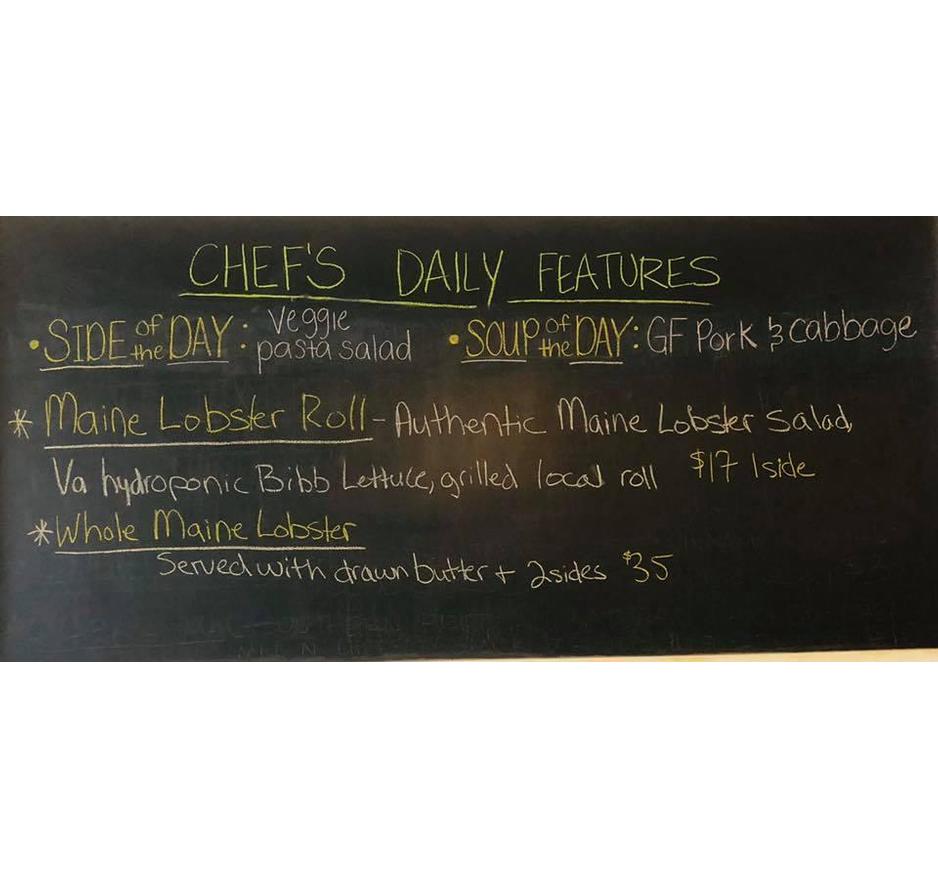 CHEF'S DAILY FEATURES
• SIDE of the DAY: veggie pasta salad • SOUP of the DAY: GF Pork & cabbage
* Maine Lobster Roll - Authentic Maine Lobster Salad,
Va hydroponic Bibb Lettuce, grilled local roll $17 1 side
* Whole Maine Lobster
Served with drawn butter + 2 sides $35